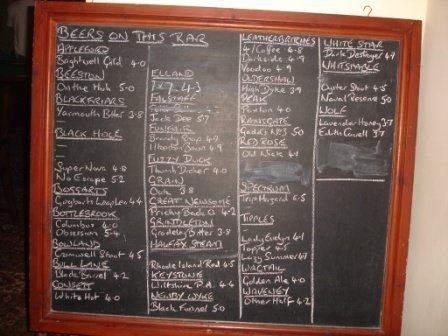 BEERS ON THIS BAR
APPLEFORD
Brightwell Gold 4.0
BEESTON
On the Huh 5.0
BLACKFRIARS
Yarmouth Bitter 3.8
BLACK HOLE
–
–
Super Nova 4.8
No Escape 5.2
BOGGARTS
Bogharts Leaplen 4.4
BOTTLEBROOK
Columbus 4.0
Obsession 5.4
BOWLAND
Cromwell Stout 4.5
BULL LANE
Black Barrel 4.2
CONSETT
White Hot 4.0
ELLAND
1872 4.3
FALSTAFF
Jack Dee 5.7
FUNFAIR
Brandy Snap 4.9
Illusion 4.9
FUZZY DUCK
Thumb Ducker 4.0
GRAIN
Oak 3.8
GREAT NEWSOME
Pricky Back O 4.2
GRINDLETON
Gradeley Bitter 3.8
HALFAX STEAM
–
Rhode Island Red 4.5
KEYSTONE
Wiltshire P.A. 4.4
NEWBY WYKE
Black Funnel 5.0
LEATHERBRITCHES
4/Coffee 4.8
Darkside 4.9
Voodoo 4.9
OLDERSHAW
High Dyke 3.9
PEAK
4.0
RAMSGATE
Gadds No3 5.0
RED ROSE
Old Nick
SPECTRUM
Trip Hazard 6.5
TIPPLES
–
Lady Evelyn 4.1
Topper 4.5
Lazy Summer
WAGTAIL
Golden Ale 4.0
WAVENEY
Other Half 4.2
WHITE STAR
Dark Destroyer 4.9
WHITSTABLE
–
Oyster Stout 4.5
Naval Reserve 5.0
WOLF
Lavender Honey 3.7
Edith Cavell 3.7